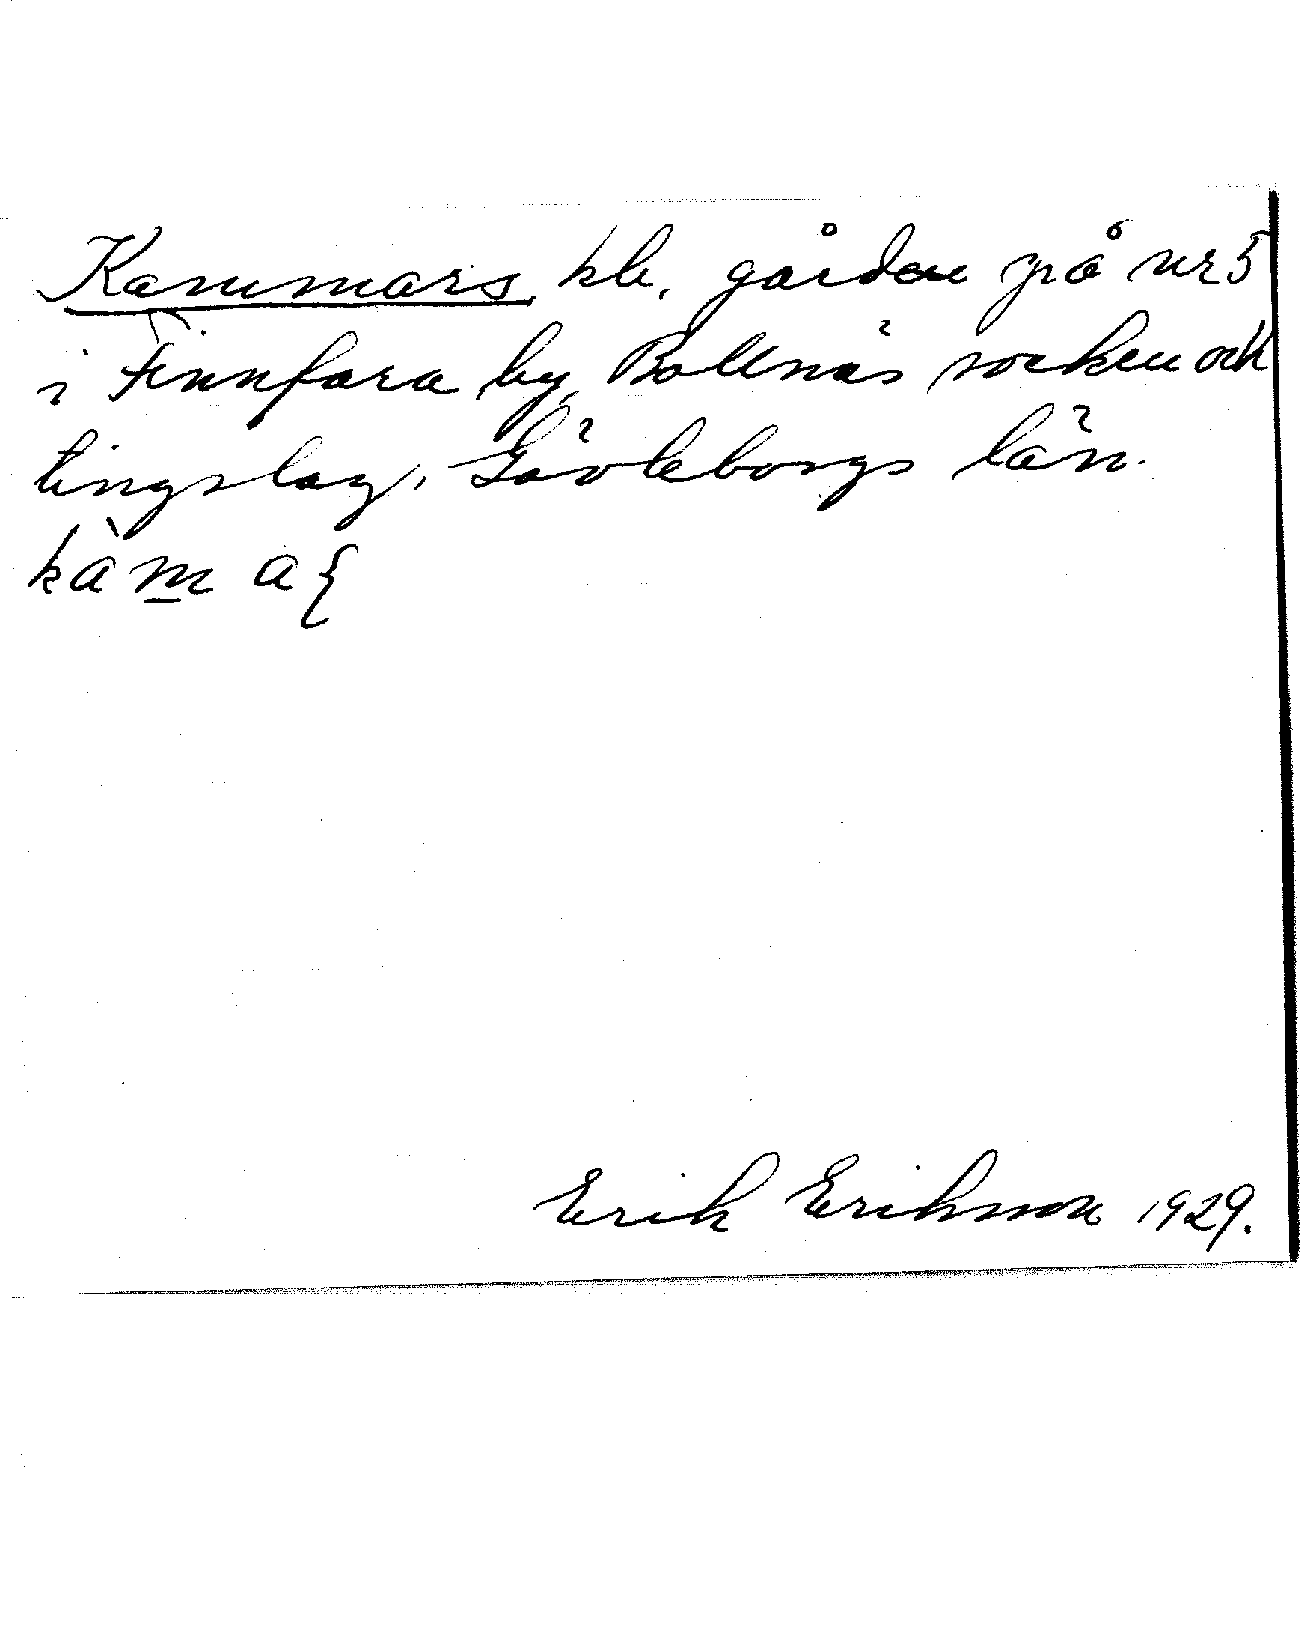 Kammars, kb. gården på nr 5
i Finnfara by, Bollnäs socken och
tingslag, Gävleborgs län.
kàm a{
Erik Eriksson 1929.